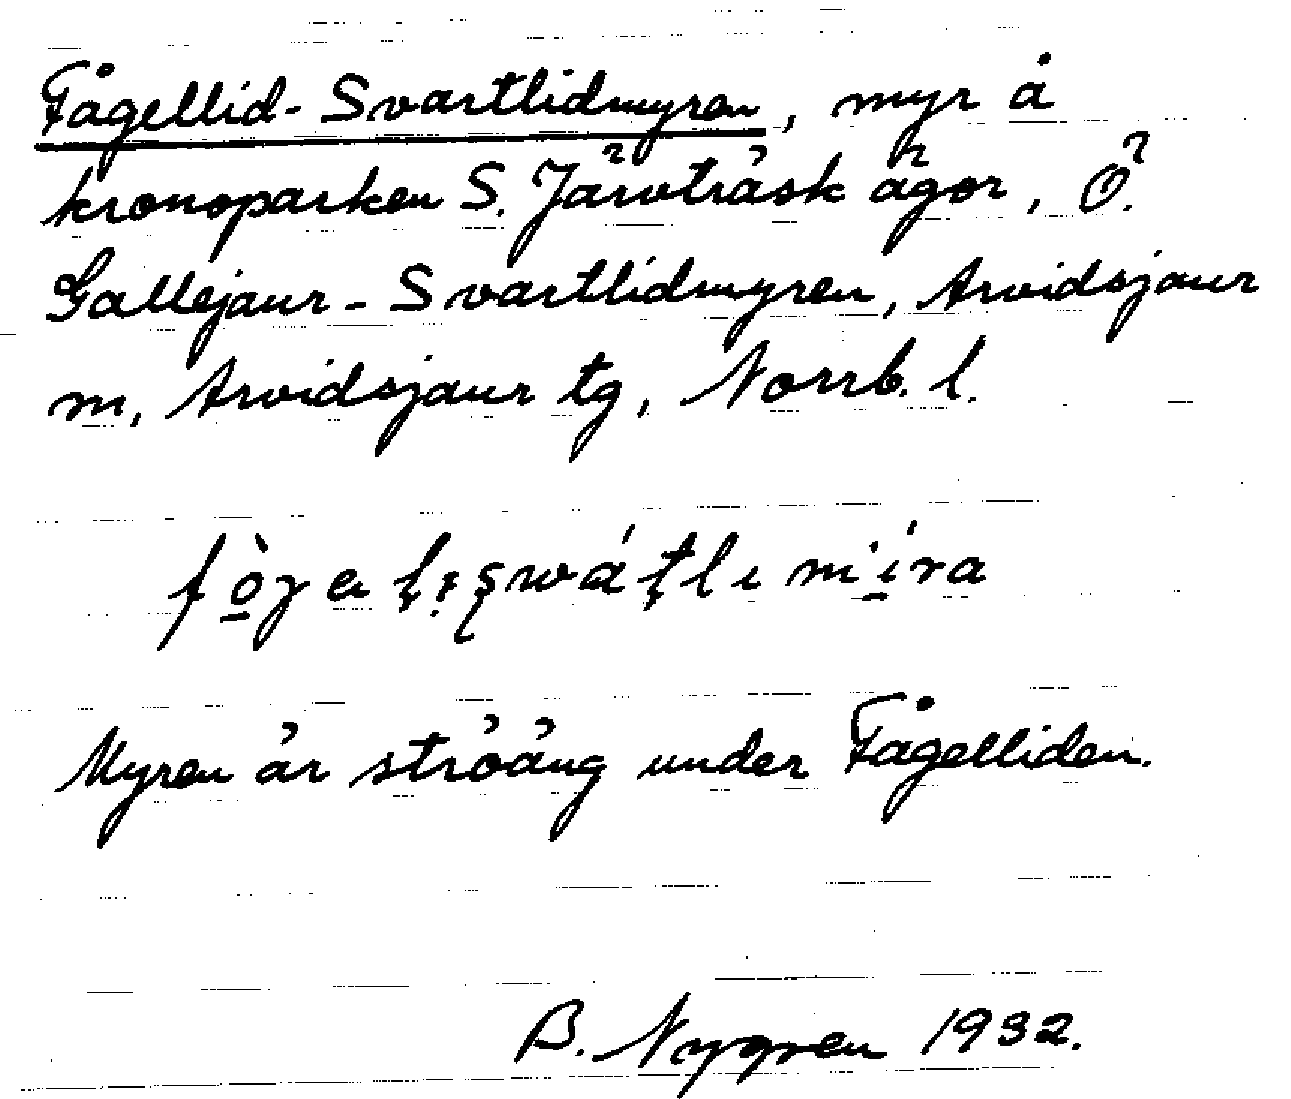 Fågellid-Svartlidmyren, myr å
kronoparken S. Järvträsk ägor, Ö.
Gallejaur-Svartlidmyren, Arvidsjaur
m, Arvidsjaur tg, Norrb. l.
Myren är ströäng under Fågelliden.
B. Nygren 1932.